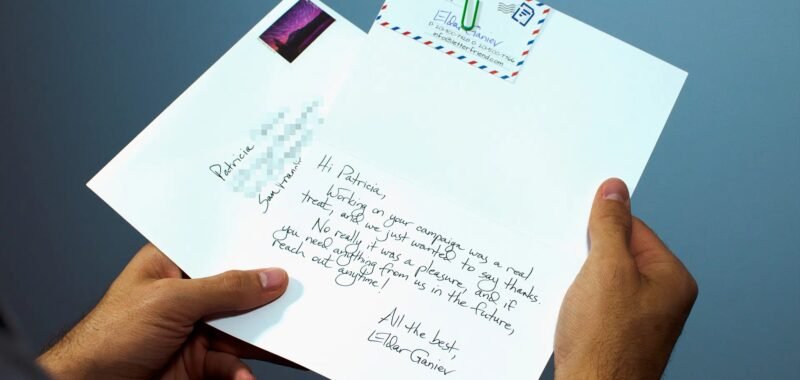 Eldar Ganiev
info@letterfriend.com
Patricia
San Franci
Hi Patricia,
Working on your campaign was a real
treat, and we just wanted to say thanks.
No really it was a pleasure, and if
you need anything from us in the future,
reach out anytime!
All the best,
Eldar Ganiev